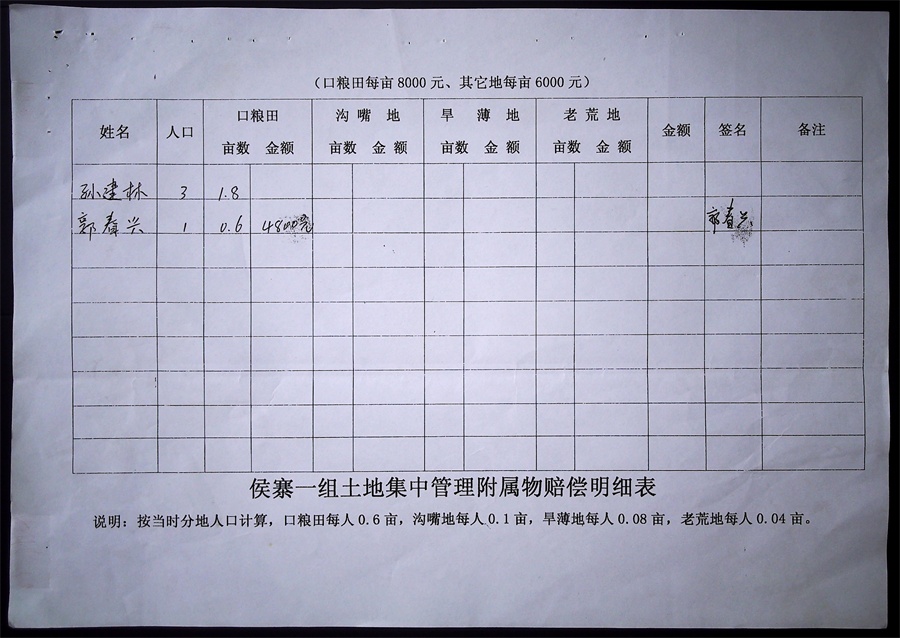 （口粮田每亩 8000 元、其它地每亩 6000 元）
姓名 人口 口粮田 沟嘴地 旱薄地 老荒地 金额 签名 备注
亩数 金额 亩数 金额 亩数 金额 亩数 金额
孙建林 3 1.8
郭春兴 1 0.6 4800元 郭春兴
侯寨一组土地集中管理附属物赔偿明细表
说明：按当时分地人口计算，口粮田每人 0.6 亩，沟嘴地每人 0.1 亩，旱薄地每人 0.08 亩，老荒地每人 0.04 亩。